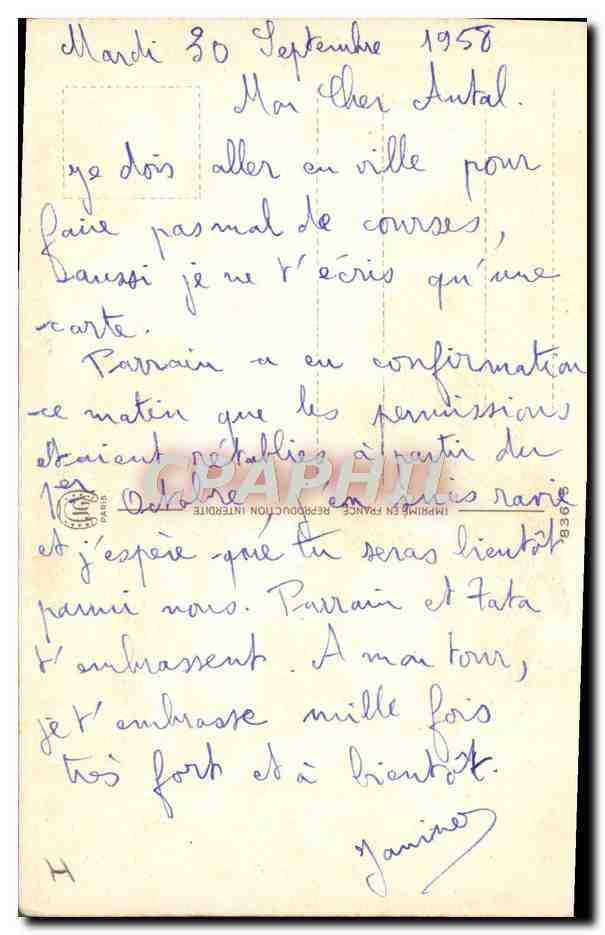 Mardi 30 Septembre 1958
Mon Cher Antal.
je dois aller en ville pour
faire pas mal de courses,
aussi je ne t'écris qu'une
carte.
Parrain a eu confirmation
ce matin que les permissions
étaient rétablies à partir du
1er Octobre, j'en suis ravie
et j'espère que tu seras bientôt
parmi nous. Parrain et Tata
t'embrassent. A mon tour,
je t'embrasse mille fois
très fort et à bientôt.
Janine
H
CPAPHIL
PARIS
IMPRIMÉ EN FRANCE REPRODUCTION INTERDITE